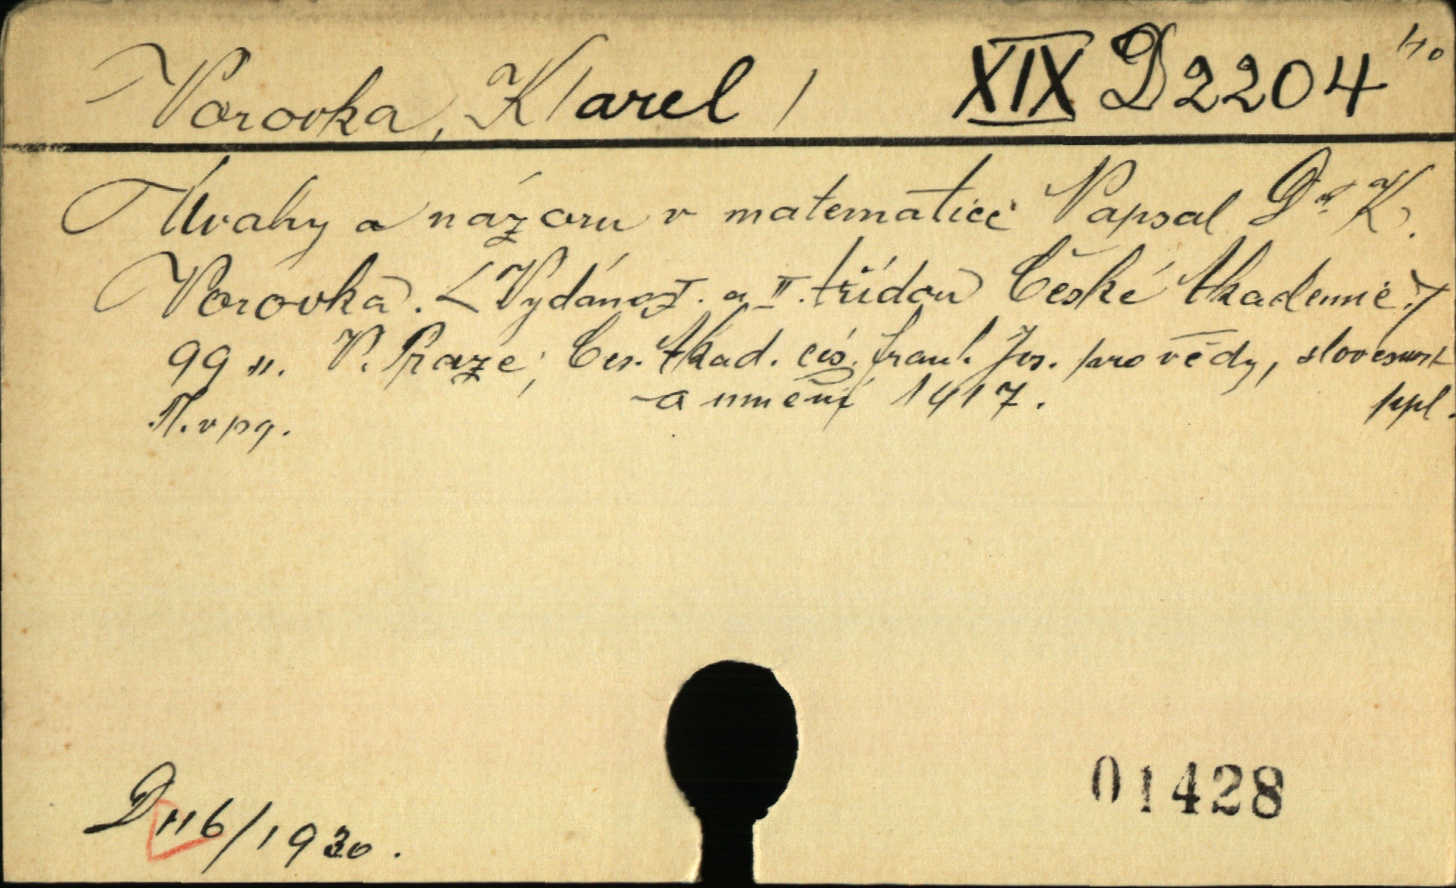 Vorovka, K/arel/ XIX D 2204
Úvahy o názoru v matematice Napsal Dr. K.
Vorovka. <Vydáno I. a II. třídou České Akademie.>
99 s. V Praze, Čes. Akad. cís. Frant. Jos. pro vědy, slovesnost
a umění 1917.
D 116/1930.
01428